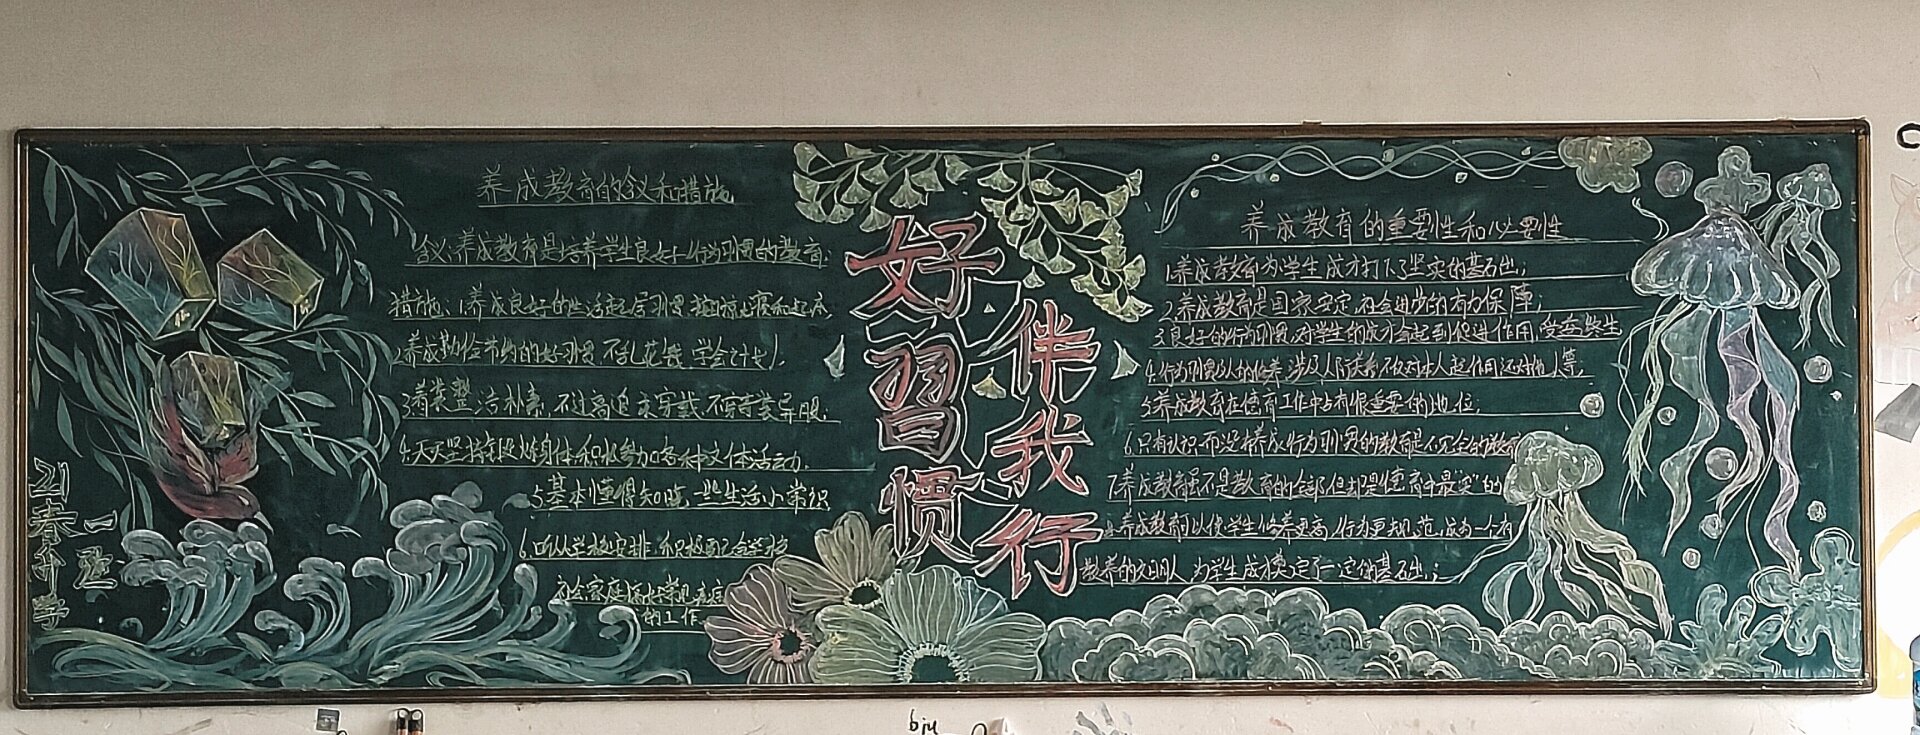 养成教育的含义和措施
含义:养成教育是培养学生良好行为习惯的教育.
措施:1.养成良好的生活起居习惯
2.养成勤俭节约的好习惯 不乱花钱 学会计划.
3.着装整洁朴素,不过高追求穿戴.不穿奇装异服.
4.天天坚持锻炼身体.积极参加各种文体活动.
5.基本懂得知晓一些生活小常识
6.听从学校安排 积极
社会家庭
的工作.
21春升学
一班
好习惯
伴我行
养成教育的重要性和必要性
1.养成教育为学生成才打下了坚实的基石出;
2.养成教育是国家安定,社会进步的有力保障;
3.良好的行为习惯对学生的成才会起到促进作用,受益终生
4.行为习惯 的培养涉及人际关系不仅对本人起作用还对他人等;
5.养成教育在德育工作中占有很重要的地位;
6.只有认识而没有养成行为习惯的教育是不完全的教育
7.养成教育虽不是教育的全部,但却是德育中最"实"的
8.养成教育可以使学生修养更高,行为更规范,成为一个有
教养的文明人 为学生成才奠定了一定的基石出;
bju